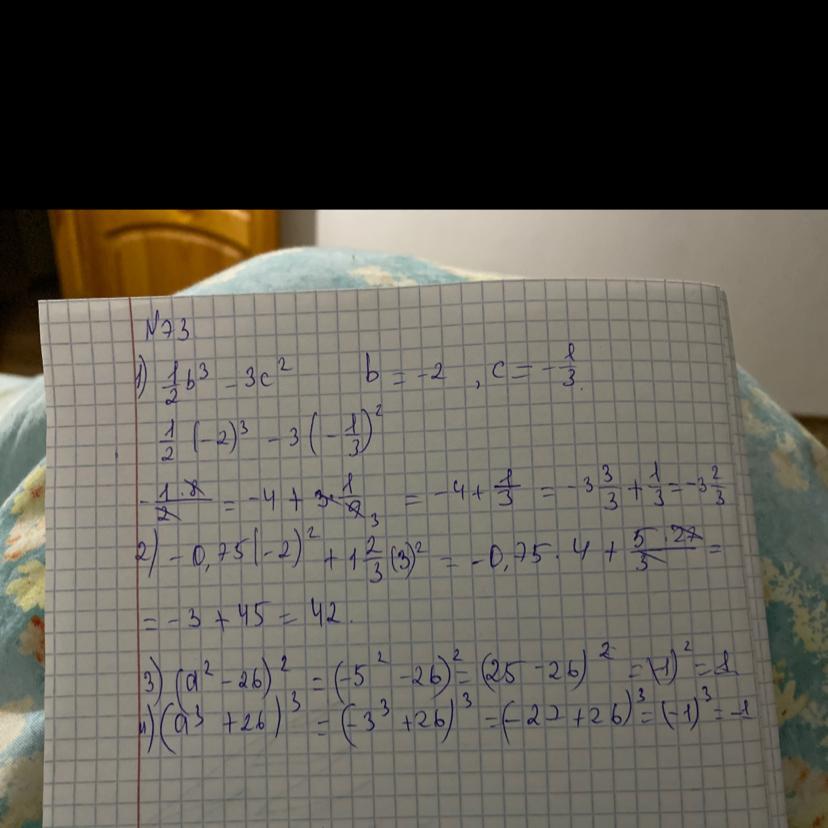 №73
1) 1/2 b³ - 3c²   b = -2, c = -1/3.
1/2 (-2)³ - 3(-1/3)²
-1·8/2 = -4 + 3·1/9 3 = -4 + 1/3 = -3 3/3 + 1/3 = -3 2/3
2) -0,75(-2)² + 1 2/3 (3)² = -0,75·4 + 5·27/3 =
= -3 + 45 = 42.
3) (a² - 26)² = (-5² - 26)² = (25 - 26)² = (-1)² = 1
4) (a³ + 26)³ = (-3³ + 26)³ = (-27 + 26)³ = (-1)³ = -1